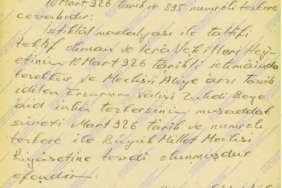 10 Mart 926 tarih ve 895 numrolu tezkere
cevabıdır:
İstiklâl madalyası ile taltifi
teklif olunan ve İcra Vekilleri Hey'
etinin 10 Mart 926 tarihli ictimaında
tezekkür ve Meclisi Âliye arzı tasvib
edilen Erzurum Valisi Zühdi Beye
aid inha tezkeresinin musaddak
sureti Mart 926 tarih ve numrolu
tezkere ile Büyük Millet Meclisi
Riyasetine tevdi olunmuşdur
efendim.